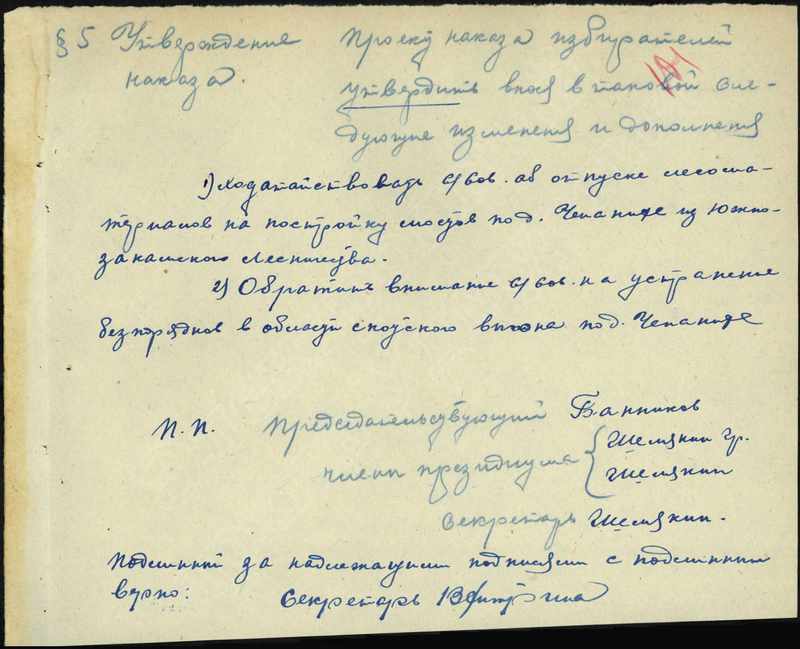 § 5 Утверждение Проект наказа избирателей
наказа. утвердить внося в таковой сле-
дующие изменения и дополнения
1) Ходатайствовать с/сов. об отпуске лесома-
териалов на постройку мостов под. Чепанихе из Южно-
закамского лесничества.
2) Обратить внимание с/сов. на устранение
безпорядков в области скотского выгона под. Чепанихе
П.П. Председательствующий Банников
члены президиума { Шемякин Гр.
Шемякин
Секретарь Шемякин.
Подлинный за надлежащими подписями с подлинным
верно: Секретарь